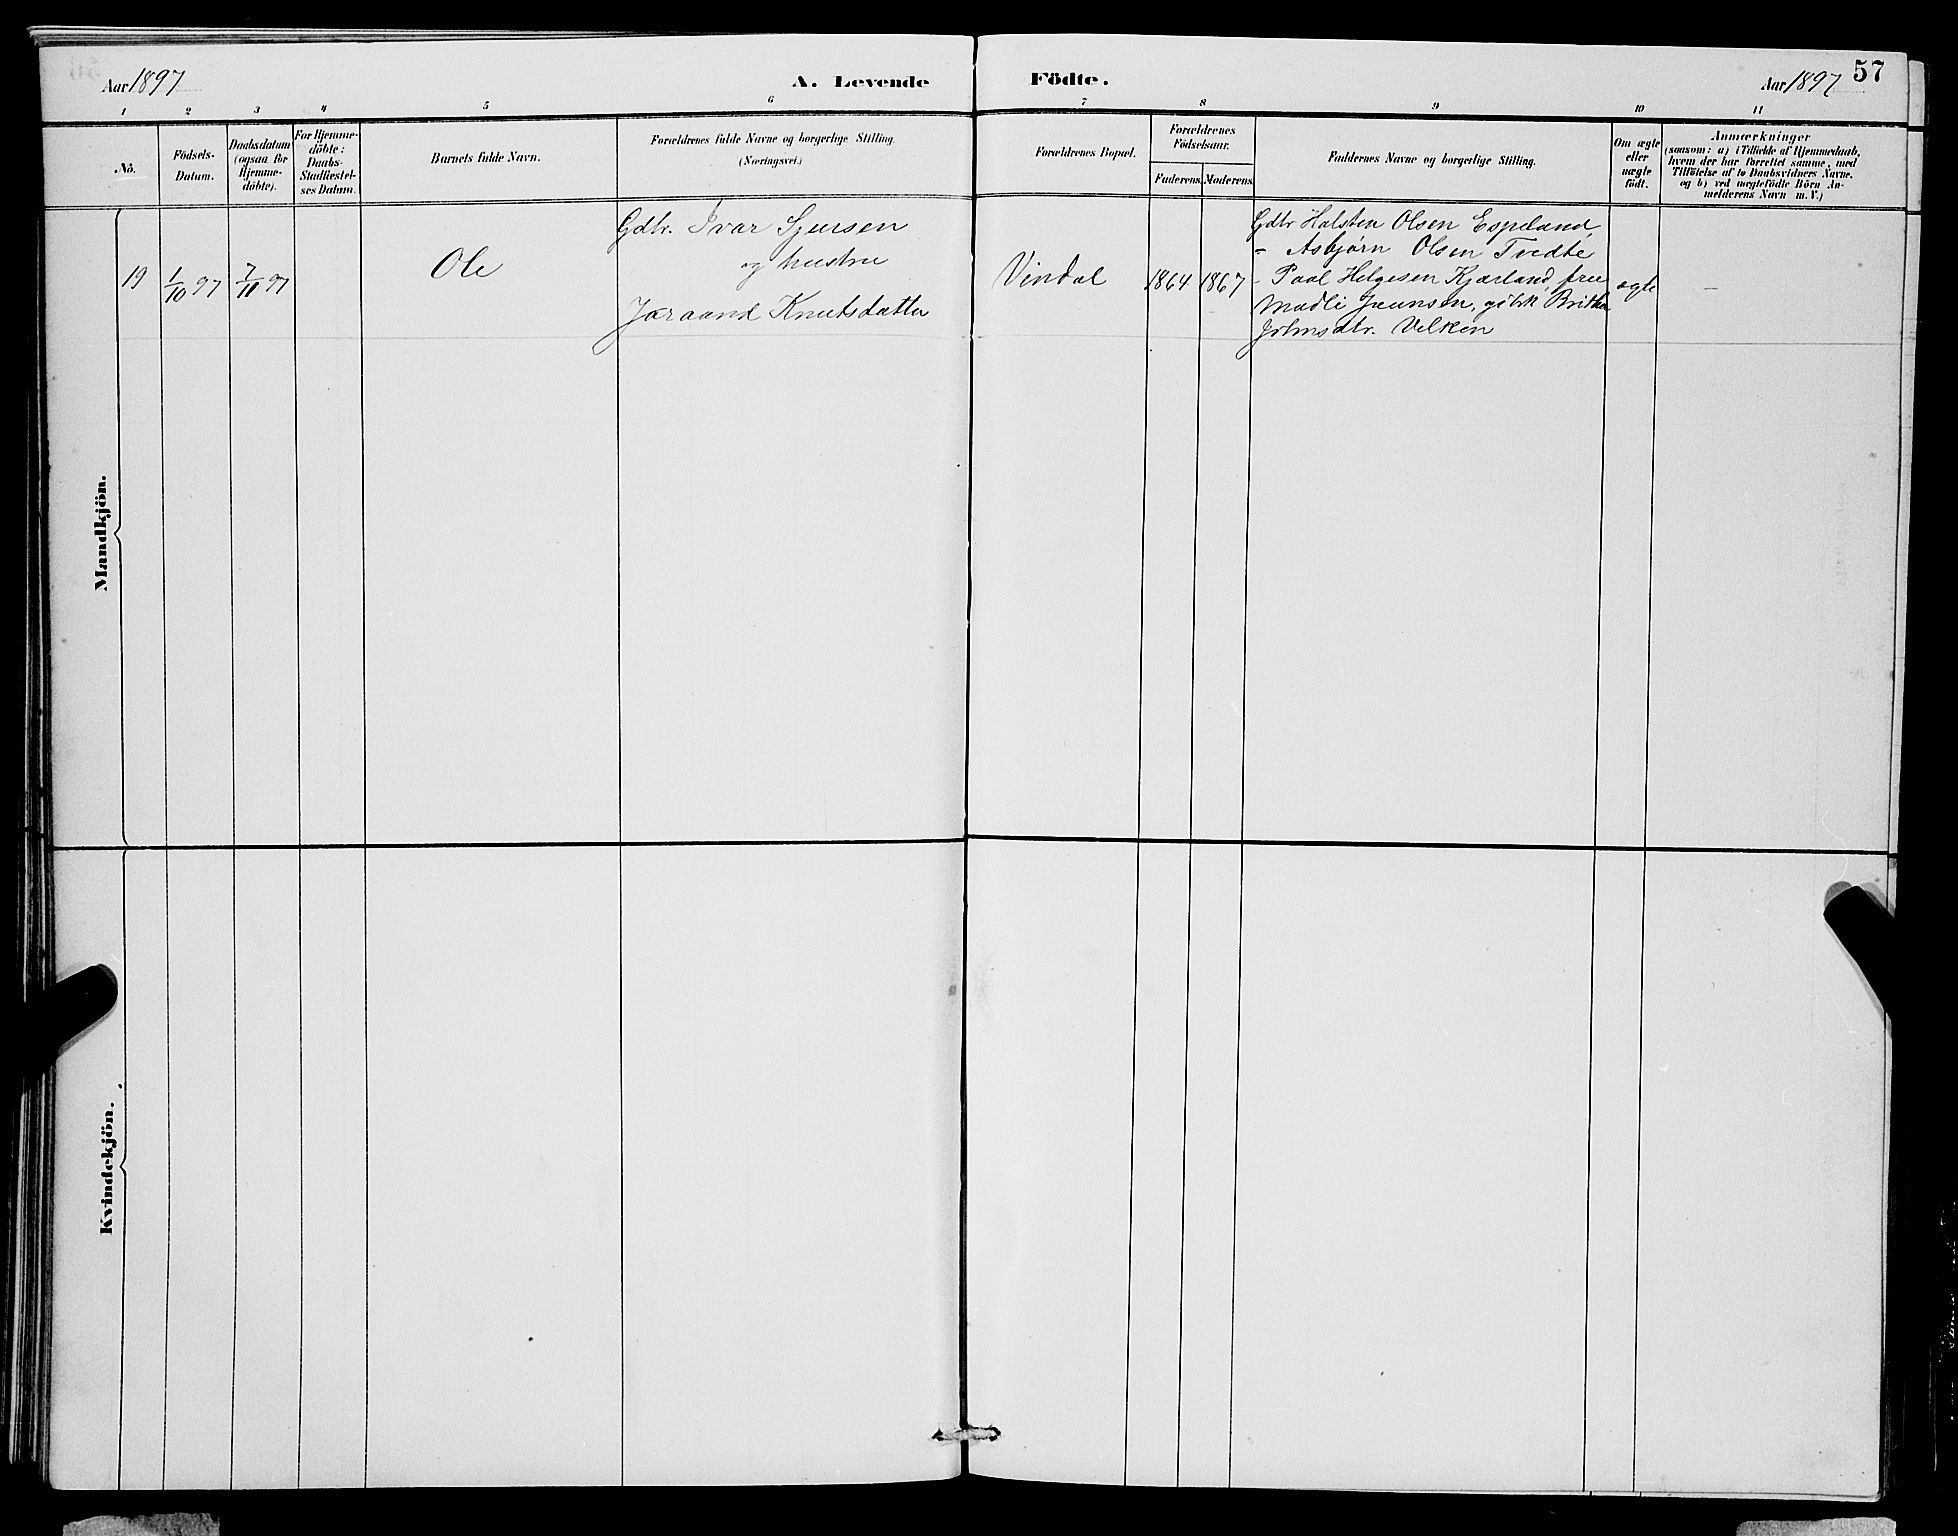 Aar 1897
A. Levende
Födte.
Aar 1897
57
1 2 3 4 5 6 7 8 9 10 11
No.
Födsels-
Datum.
Daabsdatum
(ogsaa for
Hjemme-
döbte).
For Hjemme-
döbte:
Daabs-
Stadfestel-
ses Datum.
Barnets fulde Navn.
Forældrenes fulde Navne og borgerlige Stilling.
(Næringsvei.)
Forældrenes Bopæl.
Forældrenes
Födselsaar.
Faderens. Moderens.
Faddernes Navne og borgerlige Stilling.
Om ægte
eller
uægte
födt.
Anmærkninger
(saasom: a) i Tilfælde af Hjemmedaab,
hvem der har forrettet samme, med
Tilföielse af to Daabsvidners Navne.
og b) ved uægtefödte Börn An-
melderens Navn m. V.)
Mandkjön.
19
1/10 97
7/11 97
Ole
Gdbr. Ivar Sjursen
og hustru
Knutsdatter
Vindal
1864
1867
Gdbr Halsten Olsen Espeland
- Asbjørn Olsen Tvedte
- Paal Helgesen Kjærland, fru
Madli gdbk Britha
Johnsdtr. Velken
ægte
–
Kvindekjön.